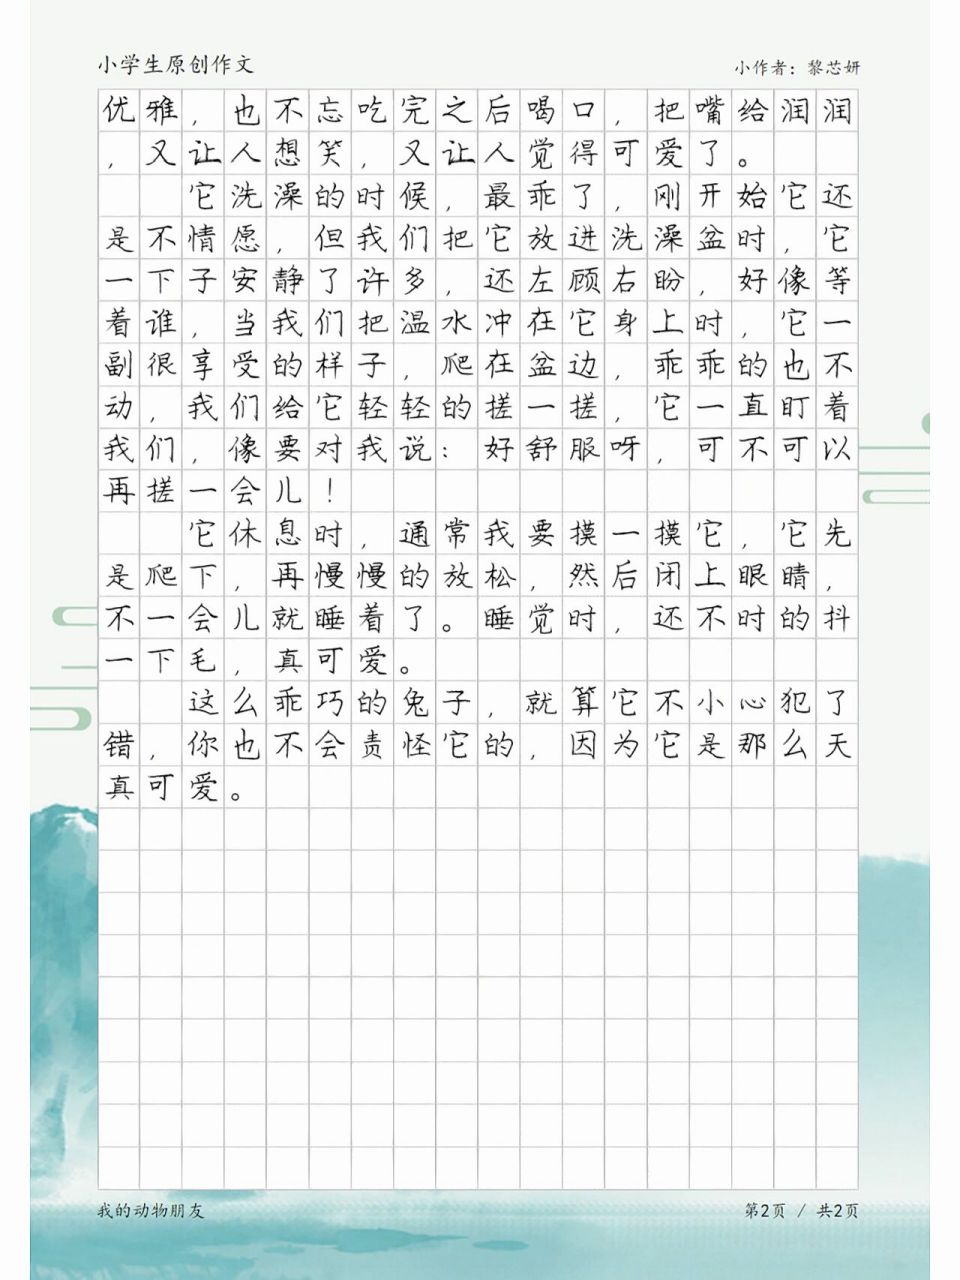 小学生原创作文
小作者：黎芯妍
优雅，也不忘吃完之后喝口，把嘴给润润
，又让人想笑，又让人觉得可爱了。
它洗澡的时候，最乖了，刚开始它还
是不情愿，但我们把它放进洗澡盆时，它
一下子安静了许多，还左顾右盼，好像等
着谁，当我们把温水冲在它身上时，它一
副很享受的样子，爬在盆边，乖乖的也不
动，我们给它轻轻的搓一搓，它一直盯着
我们，像要对我说：好舒服呀，可不可以
再搓一会儿！
它休息时，通常我要摸一摸它，它先
是爬下，再慢慢的放松，然后闭上眼睛，
不一会儿就睡着了。睡觉时，还不时的抖
一下毛，真可爱。
这么乖巧的兔子，就算它不小心犯了
错，你也不会责怪它的，因为它是那么天
真可爱。
我的动物朋友
第2页 / 共2页